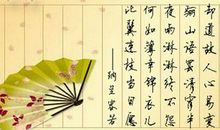 却道故人心易变
骊山语罢清宵半
夜雨淋淋终不怨
何如薄幸锦衣儿
比翼连枝当日愿
——纳兰容若